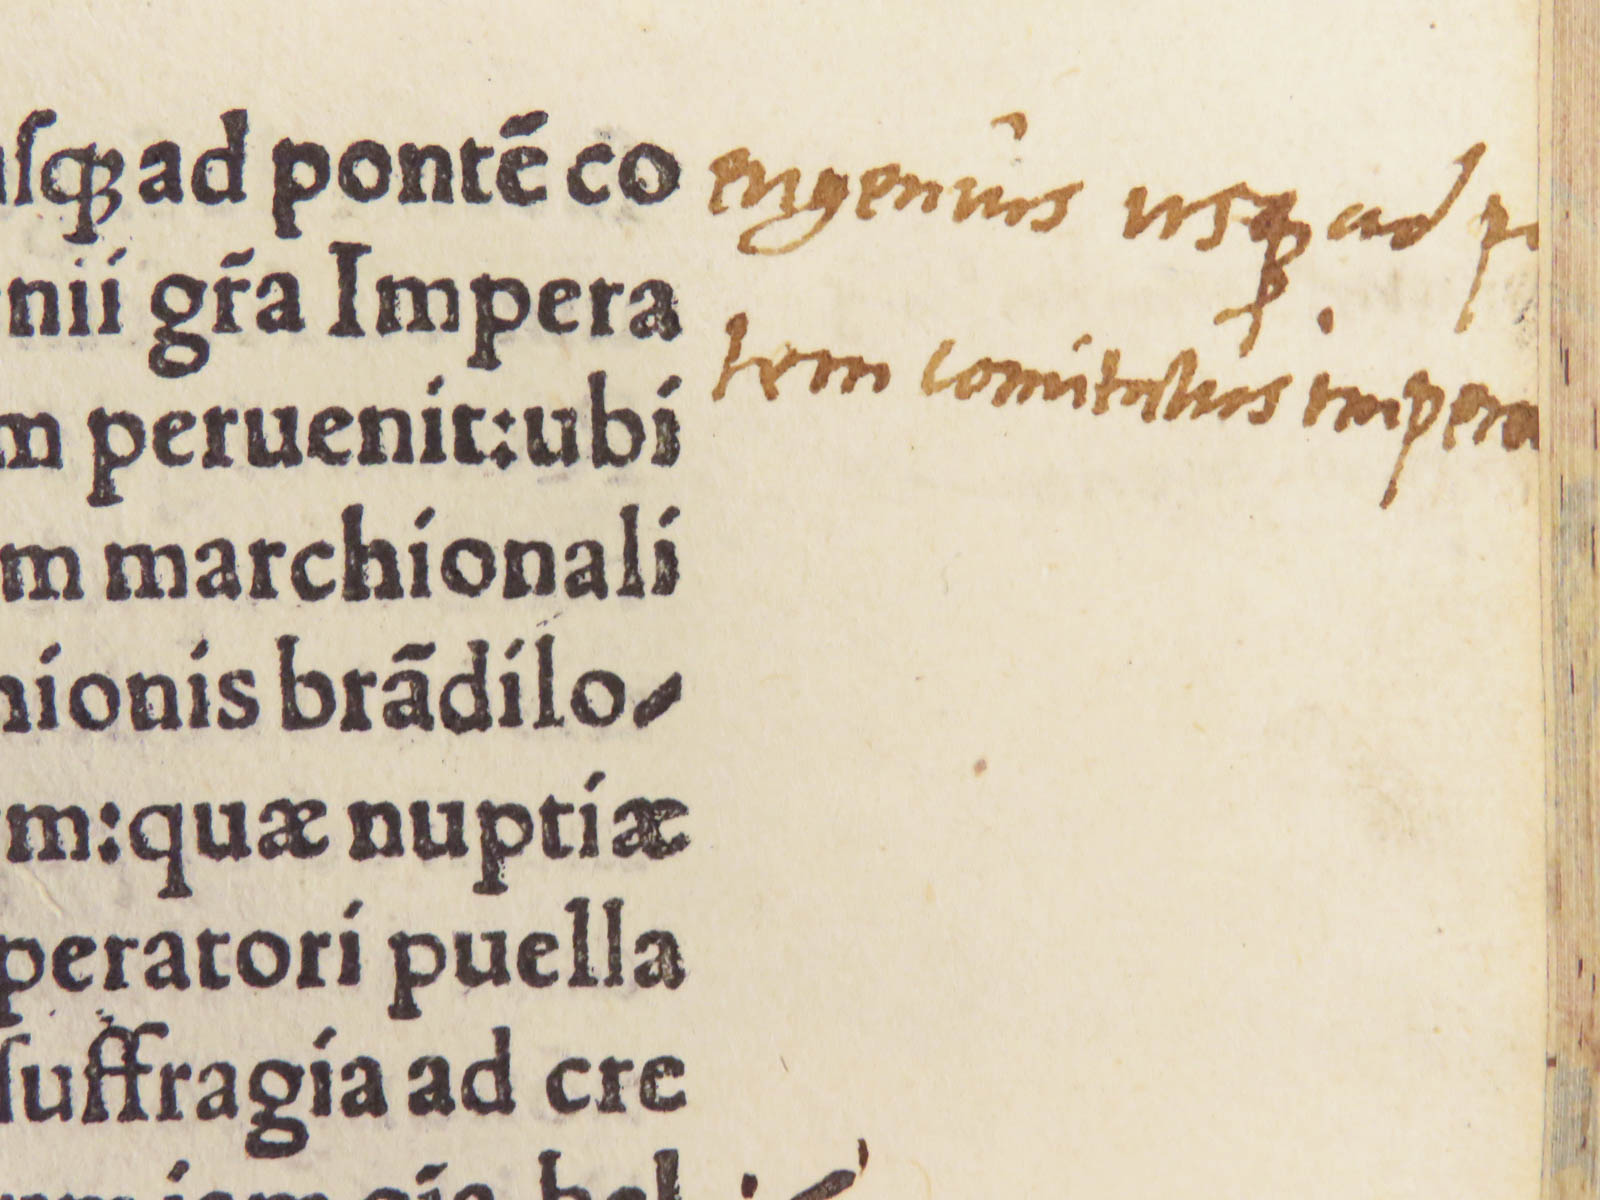 uſꝙ ad pontē co
nii gr̃a Impera
m peruenit:ubi
m marchionali
hionis brãdilo
m:quæ nuptiæ
peratori puella
ſuffragia ad cre
eugenius usq ad p
tem comitatus impera